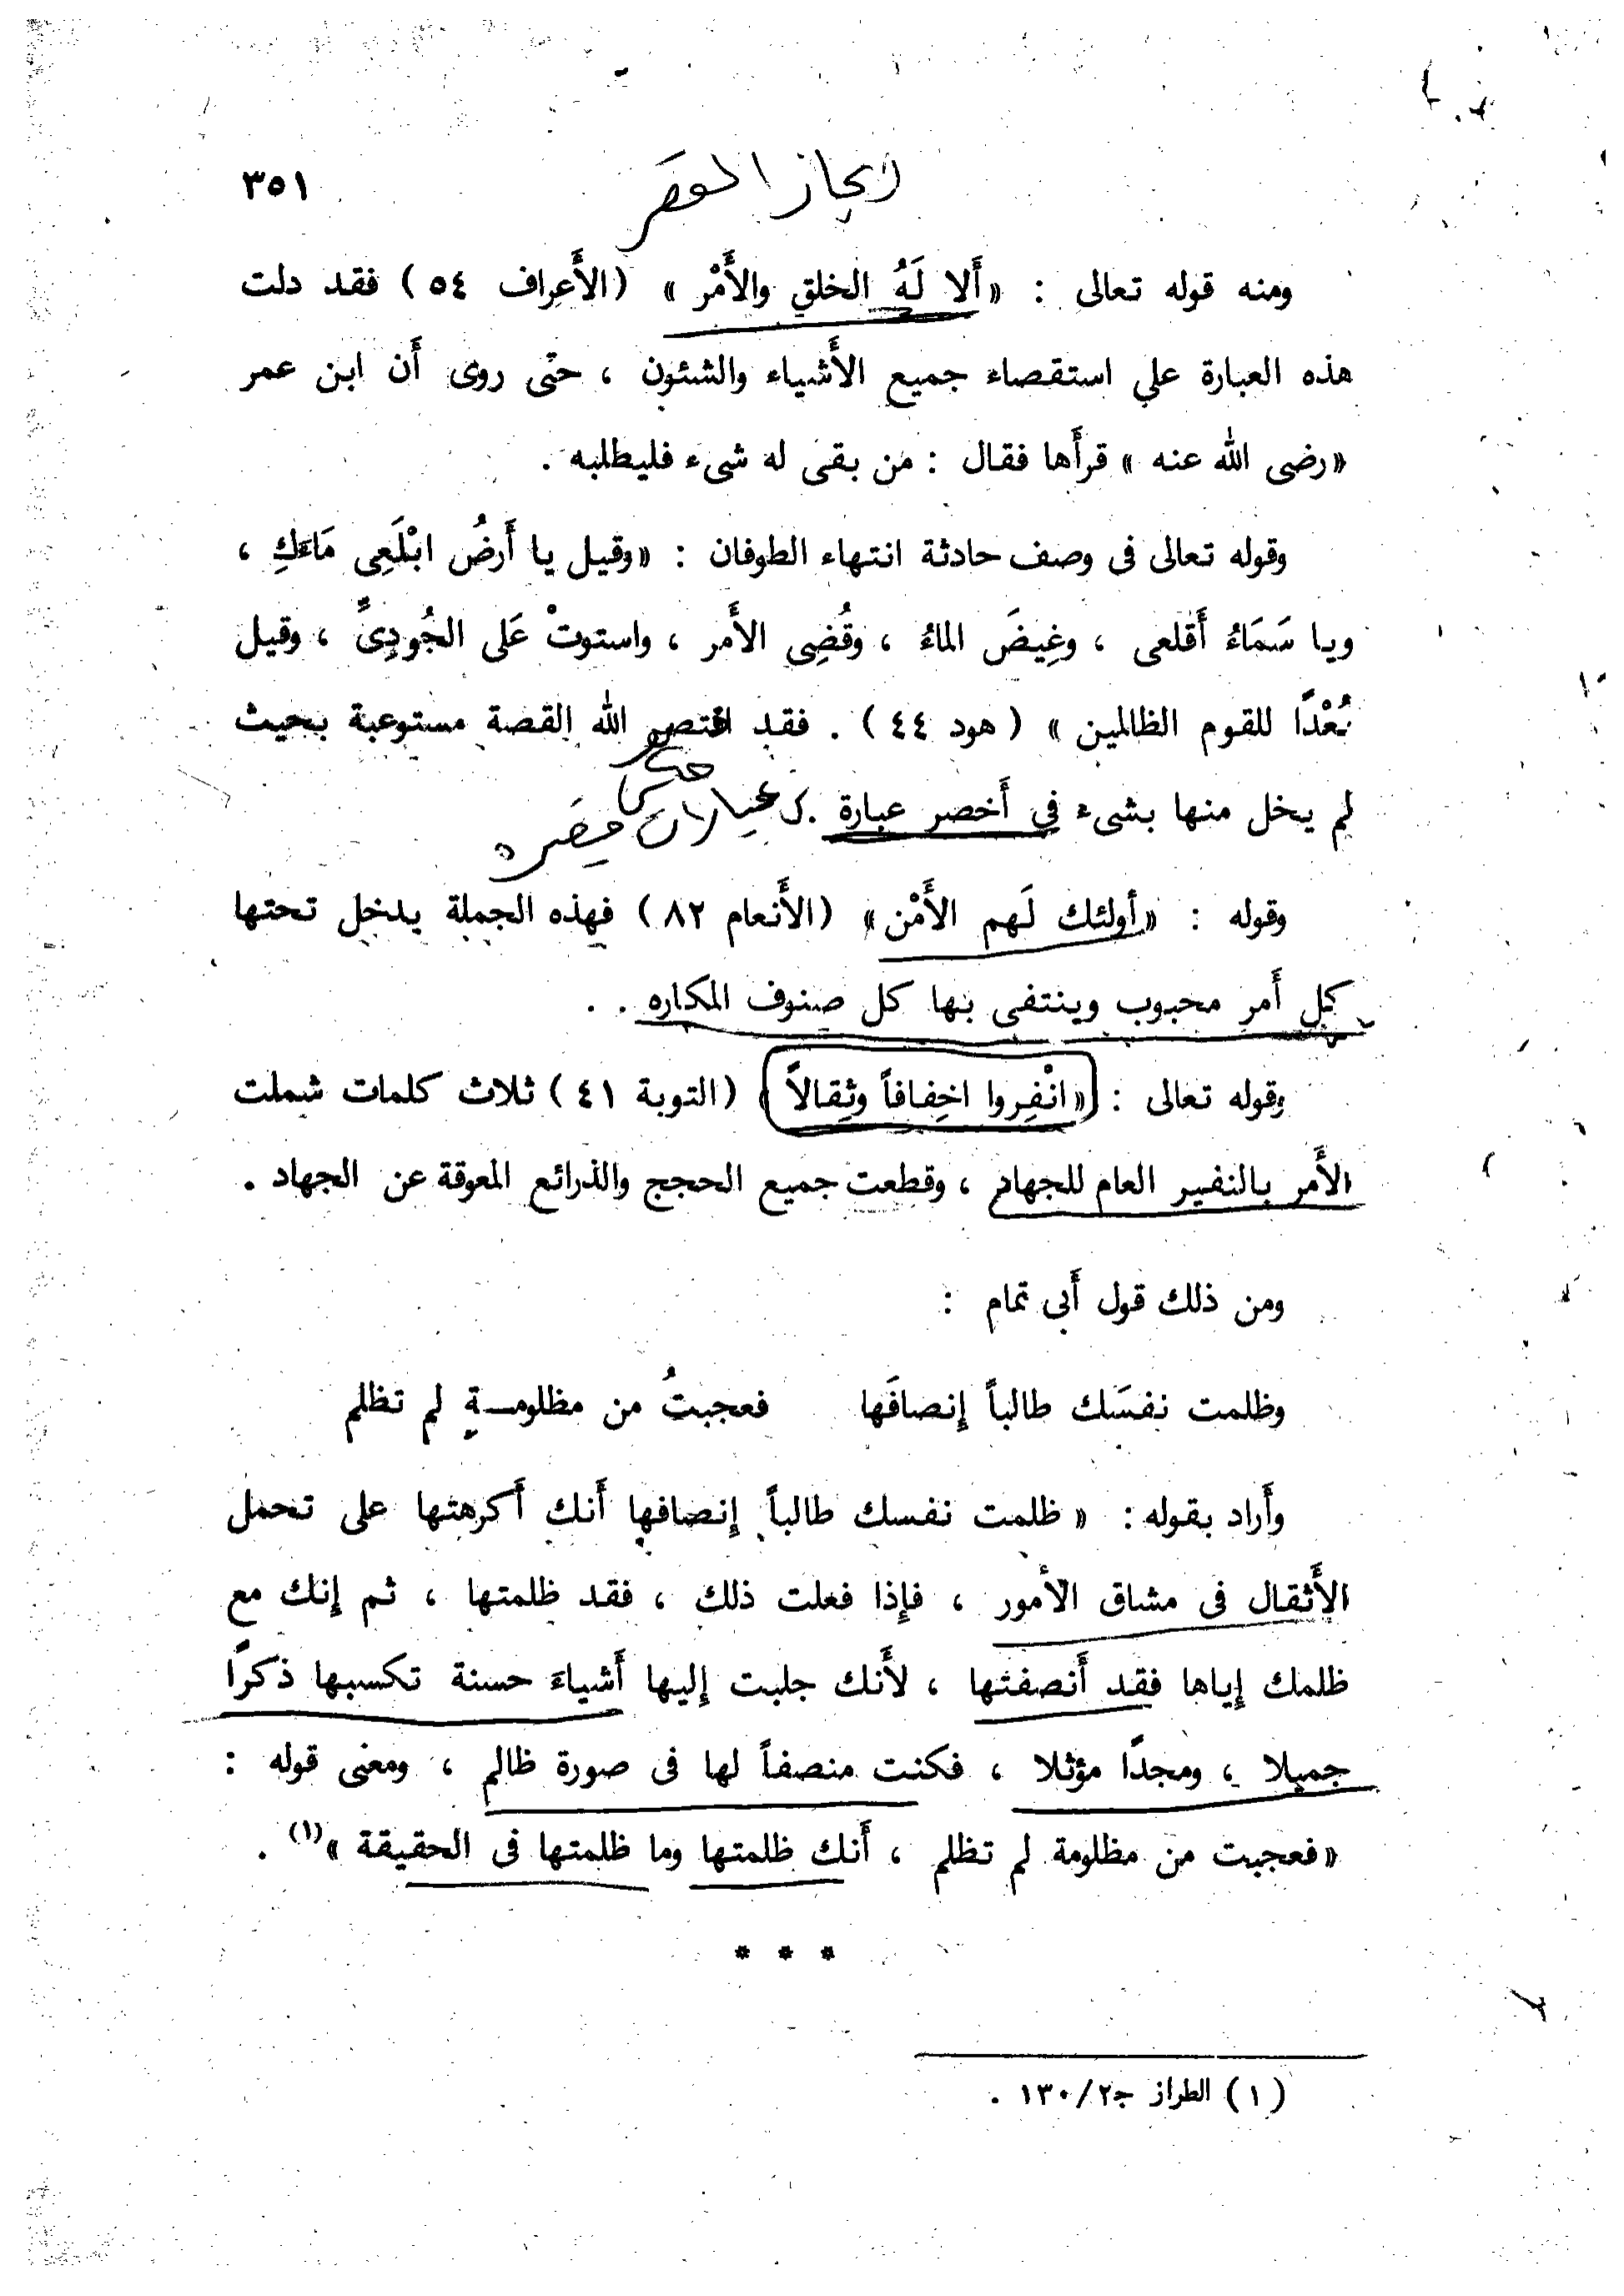 ٣٥١
إيجاز القصر
ومنه قوله تعالى : « أَلا لَهُ الخلق والأَمْر » (الأَعراف ٥٤) فقد دلت
هذه العبارة على استقصاء جميع الأَشياء والشئون ، حتى روى أَن ابن عمر
« رضى الله عنه » قرأَها فقال : من بقى له شىء فليطلبه .
وقوله تعالى فى وصف حادثة انتهاء الطوفان : « وقيل يا أَرضُ ابْلَعِى مَاءَكِ ،
ويا سَمَاءُ أَقلعى ، وغِيضَ الماءُ ، وقُضِى الأَمر ، واستوتْ عَلى الجُودِىِّ ، وقيل
بُعْدًا للقوم الظالمين » (هود ٤٤) . فقد اقتص الله القصة مستوعبة بحيث
لم يخل منها بشىء فى أَخصر عبارة .
وقوله : « أولئك لَهم الأَمْن » (الأَنعام ٨٢) فهذه الجملة يدخل تحتها
كل أَمر محبوب وينتفى بها كل صنوف المكاره . .
وقوله تعالى : « انْفِروا اخِفافاً وثِقالاً » (التوبة ٤١) ثلاث كلمات شملت
الأَمر بالنفير العام للجهاد ، وقطعت جميع الحجج والذرائع المعوقة عن الجهاد .
ومن ذلك قول أَبى تمام :
وظلمت نفسَك طالباً إنصافَها فعجبتُ من مظلومـــةٍ لم تظلم
وأَراد بقوله : « ظلمت نفسك طالباً إنصافها أَنك أَكرهتها على تحمل
الأَثقال فى مشاق الأمور ، فإذا فعلت ذلك ، فقد ظلمتها ، ثم إنك مع
ظلمك إياها فقد أَنصفتها ، لأَنك جلبت إليها أَشياءَ حسنة تكسبها ذكرًا
جميلا ، ومجدًا مؤثلا ، فكنت منصفاً لها فى صورة ظالم ، ومعنى قوله :
« فعجبت من مظلومة لم تظلم ، أَنك ظلمتها وما ظلمتها فى الحقيقة »(١) .
* * *
(١) الطراز جـ٢/١٣٠ .